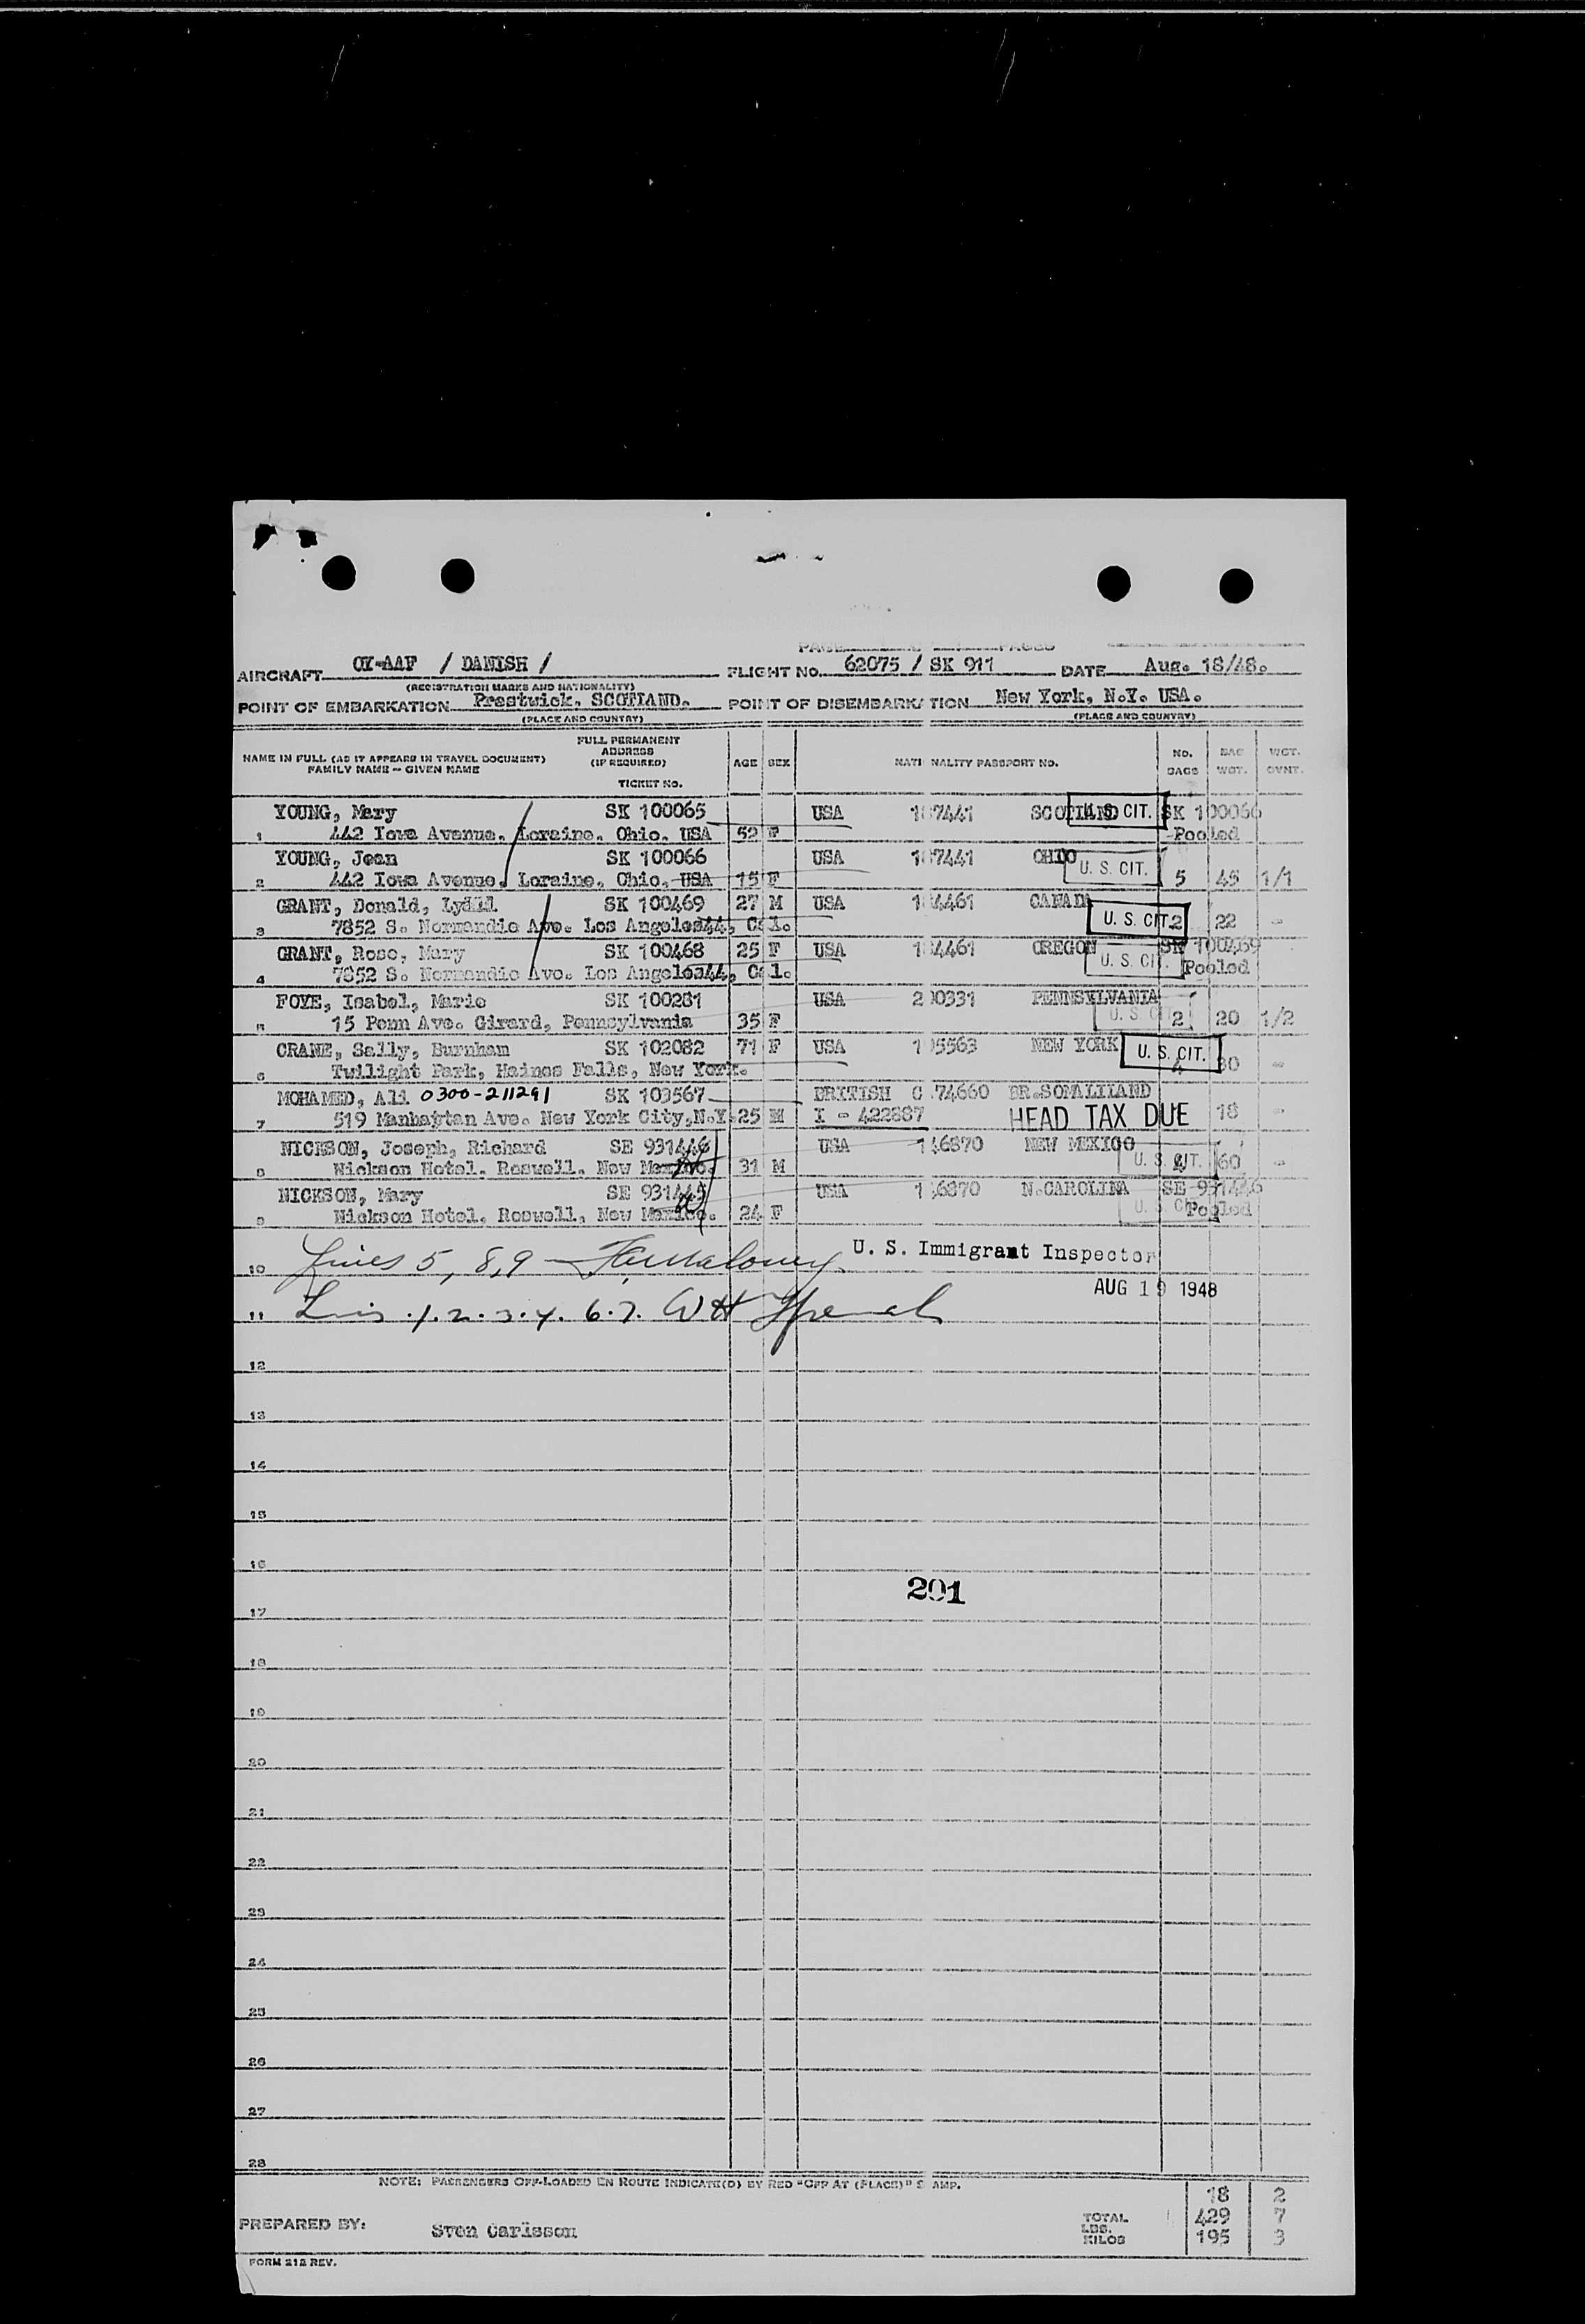 PAGE PAGES
AIRCRAFT OY-AAF / DANISH / FLIGHT NO. 62075 / SK 911 DATE Aug. 18/48.
(REGISTRATION MARKS AND NATIONALITY)
POINT OF EMBARKATION Prestwick, SCOTLAND. POINT OF DISEMBARKATION New York, N.Y. USA.
(PLACE AND COUNTRY) (PLACE AND COUNTRY)
NAME IN FULL (AS IT APPEARS IN TRAVEL DOCUMENT) FAMILY NAME - GIVEN NAME FULL PERMANENT ADDRESS (IF REQUIRED) TICKET NO. AGE SEX NATI NALITY PASSPORT NO. NO. BAGS BAG WGT. WGT. OVNT.
YOUNG, Mary SK 100065 USA 1 7441 SCOTLAND U. S. CIT. SK 100066
1 442 Iowa Avenue, Loraine, Ohio, USA 52 F Pooled
YOUNG, Jean SK 100066 USA 1 7441 OHIO U. S. CIT.
2 442 Iowa Avenue, Loraine, Ohio, USA 15 F 5 45 1/1
GRANT, Donald, Lydil SK 100469 27 M USA 1 4461 CANADA
3 7852 S. Normandie Ave. Los Angeles44, Cal. U. S. CIT. 2 22 -
GRANT, Rose, Mary SK 100468 25 F USA 1 4461 OREGON SK 100469
4 7852 S. Normandie Ave. Los Angeles44, Cal. U. S. CIT. Pooled
FOYE, Isabel, Marie SK 100281 USA 2 0331 PENNSYLVANIA
5 15 Penn Ave. Girard, Pennsylvania 35 F U. S. CIT. 2 20 1/2
CRANE, Sally, Burnham SK 102082 71 F USA 1 5563 NEW YORK U. S. CIT.
6 Twilight Park, Haines Falls, New York. 4 30 -
MOHAMED, Ali 0300-211291 SK 103567 BRITISH C 74660 BR.SOMALILAND
7 519 Manhaytan Ave. New York City,N.Y. 25 M I - 422887 HEAD TAX DUE 18 -
NICKSON, Joseph, Richard SE 931446 USA 1 6870 NEW MEXICO
8 Nickson Hotel. Roswell. New Mexico. 31 M U. S. CIT. 4 60 -
NICKSON, Mary SE 931445 USA 1 6870 N.CAROLINA SE 931446
9 Nickson Hotel. Roswell, New Mexico. 24 F U. S. CIT. Pooled
10 Lines 5, 8, 9 U. S. Immigrant Inspector
AUG 19 1948
11 Lines 1. 2. 3. 4. 6. 7. W H
12
13
14
15
16
201
17
18
19
20
21
22
23
24
25
26
27
28
NOTE: PASSENGERS OFF-LOADED EN ROUTE INDICATE(D) BY RED "OFF AT (PLACE)" S AMP.
18 2
PREPARED BY: Sven Carlsson TOTAL LBS. 429 7
KILOS 195 3
FORM 212 REV.